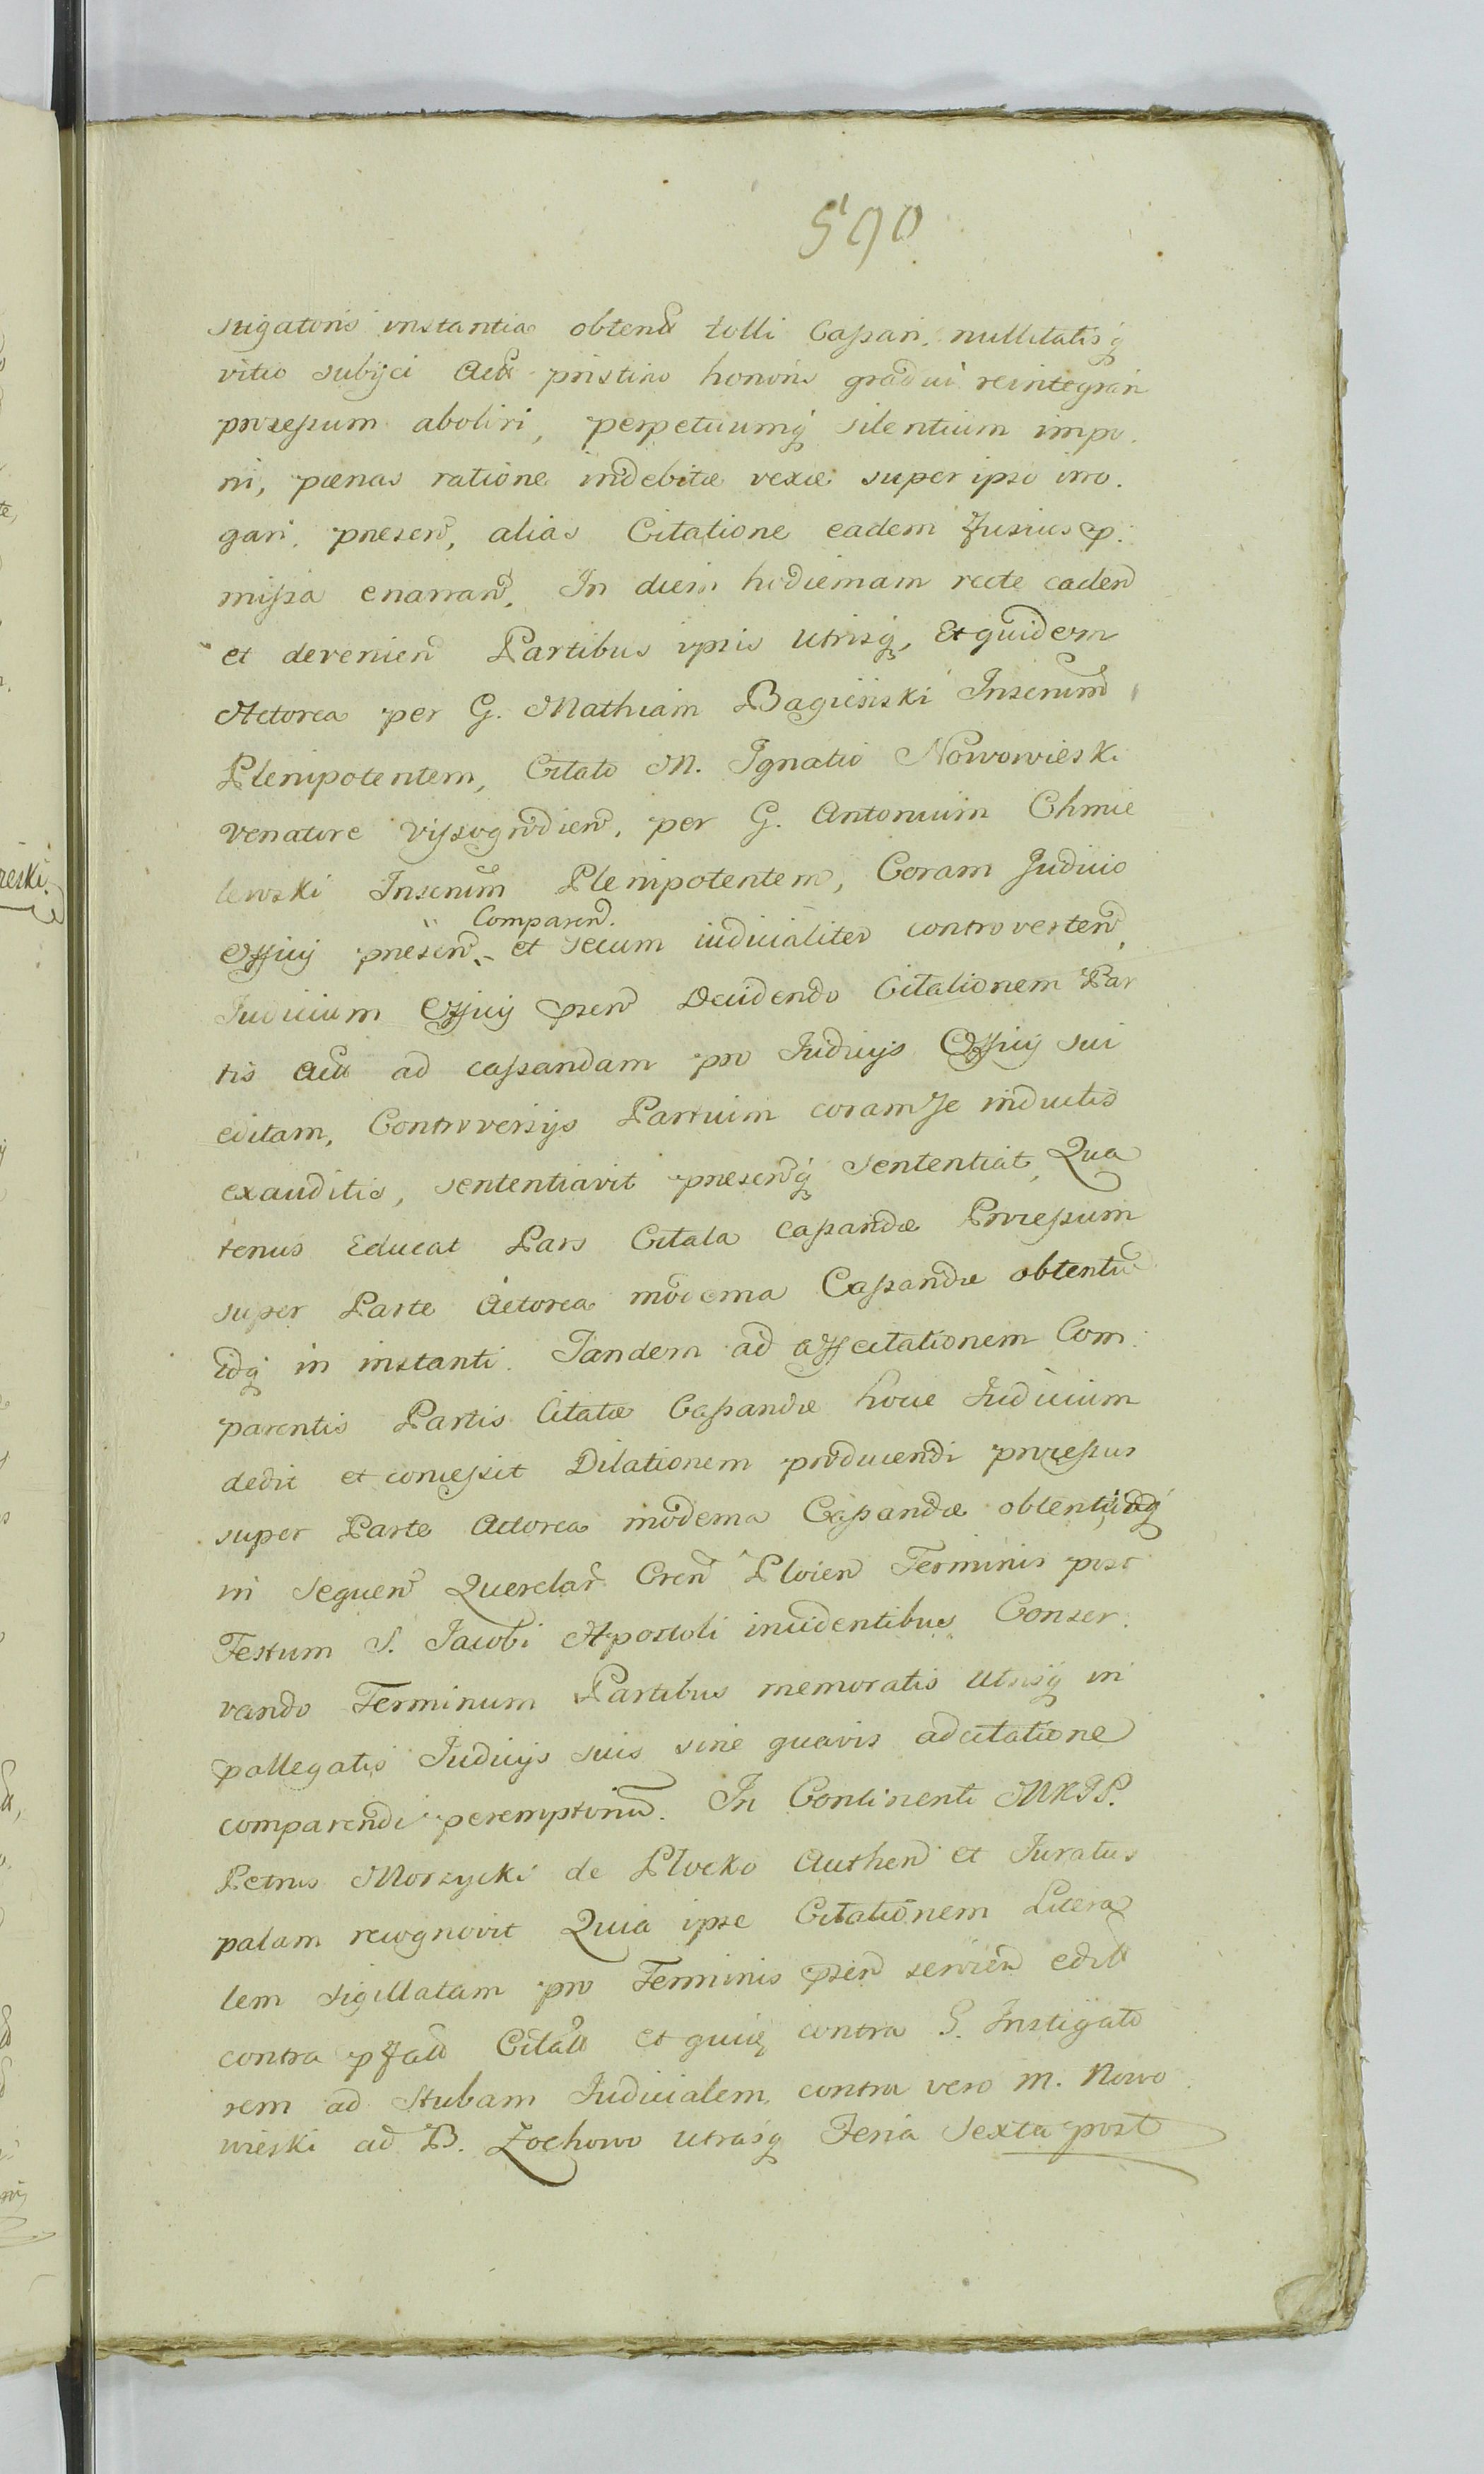 590
stigatoris instantia obtent tolli Cassari, nullitatisq
vitio subijci Act pristino honoris gradui reintegrari
processum aboliri, perpetuumq silentium impo
ni, pænas ratione indebitæ vexæ super ipso irro
gari, presen, alias Citatione eadem fusius p
missa enarran. In diem hodiernam recte caden
et devenien Partibus ipsis utrisq, Et quidem
Actorea per G. Mathiam Bagieński Inserum
Plenipotentem, Citato M. Ignatio Nowowieski
Venatore Vissogrodien, per G. Antonium Chmie
lewski Inserum Plenipotentem, Coram Judicio
Comparen.
Officij presen et secum iudicialiter controverten,
Iudicium Officij psen Decidendo Citationem Par
tis Act ad cassandam pro Iudicijs Officij sui
editam, Controversijs Partium coram se inductis
exauditis, sententiavit presenq sententiat, Qua
tenus Educat Pars Citata Cassandæ Processum
super Parte Actorea moderna Cassandæ obtentu
idq in instanti. Tandem ad affectationem Com
parentis Partis Citatæ Cassandæ hocce Iudicium
dedit et concessit Dilationem producendi processus
super Parte Actorea moderna Cassandæ obtent, idq
in sequen Querelar Gren Plocen Terminis post
Festum S. Iacobi Apostoli incidentibus Conser
vando Terminum Partibus memoratis utrisq in
pallegatis Iudicijs suis sine quavis adcitatione
comparendi peremptorium. In Continenti MRPS.
Petrus Morzycki de Plocko Authen et Iuratus
palam recognovit Quia ipse Citationem Litera
lem sigillatam pro Terminis psen servien edit
contra pfat Citat et quidq contra G. Instigato
rem ad Stubam Iudicialem, contra vero M. Nowo
wieski ad B. Zochowo utrasq Feria Sexta post